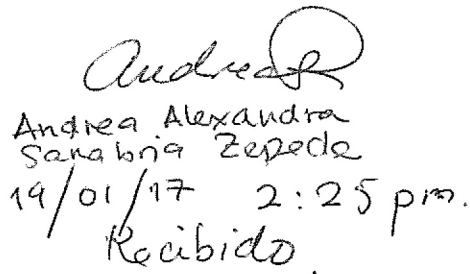 Andrea
Andrea Alexandra
Sanabria Zepeda
19/01/17 2:25 pm.
Recibido